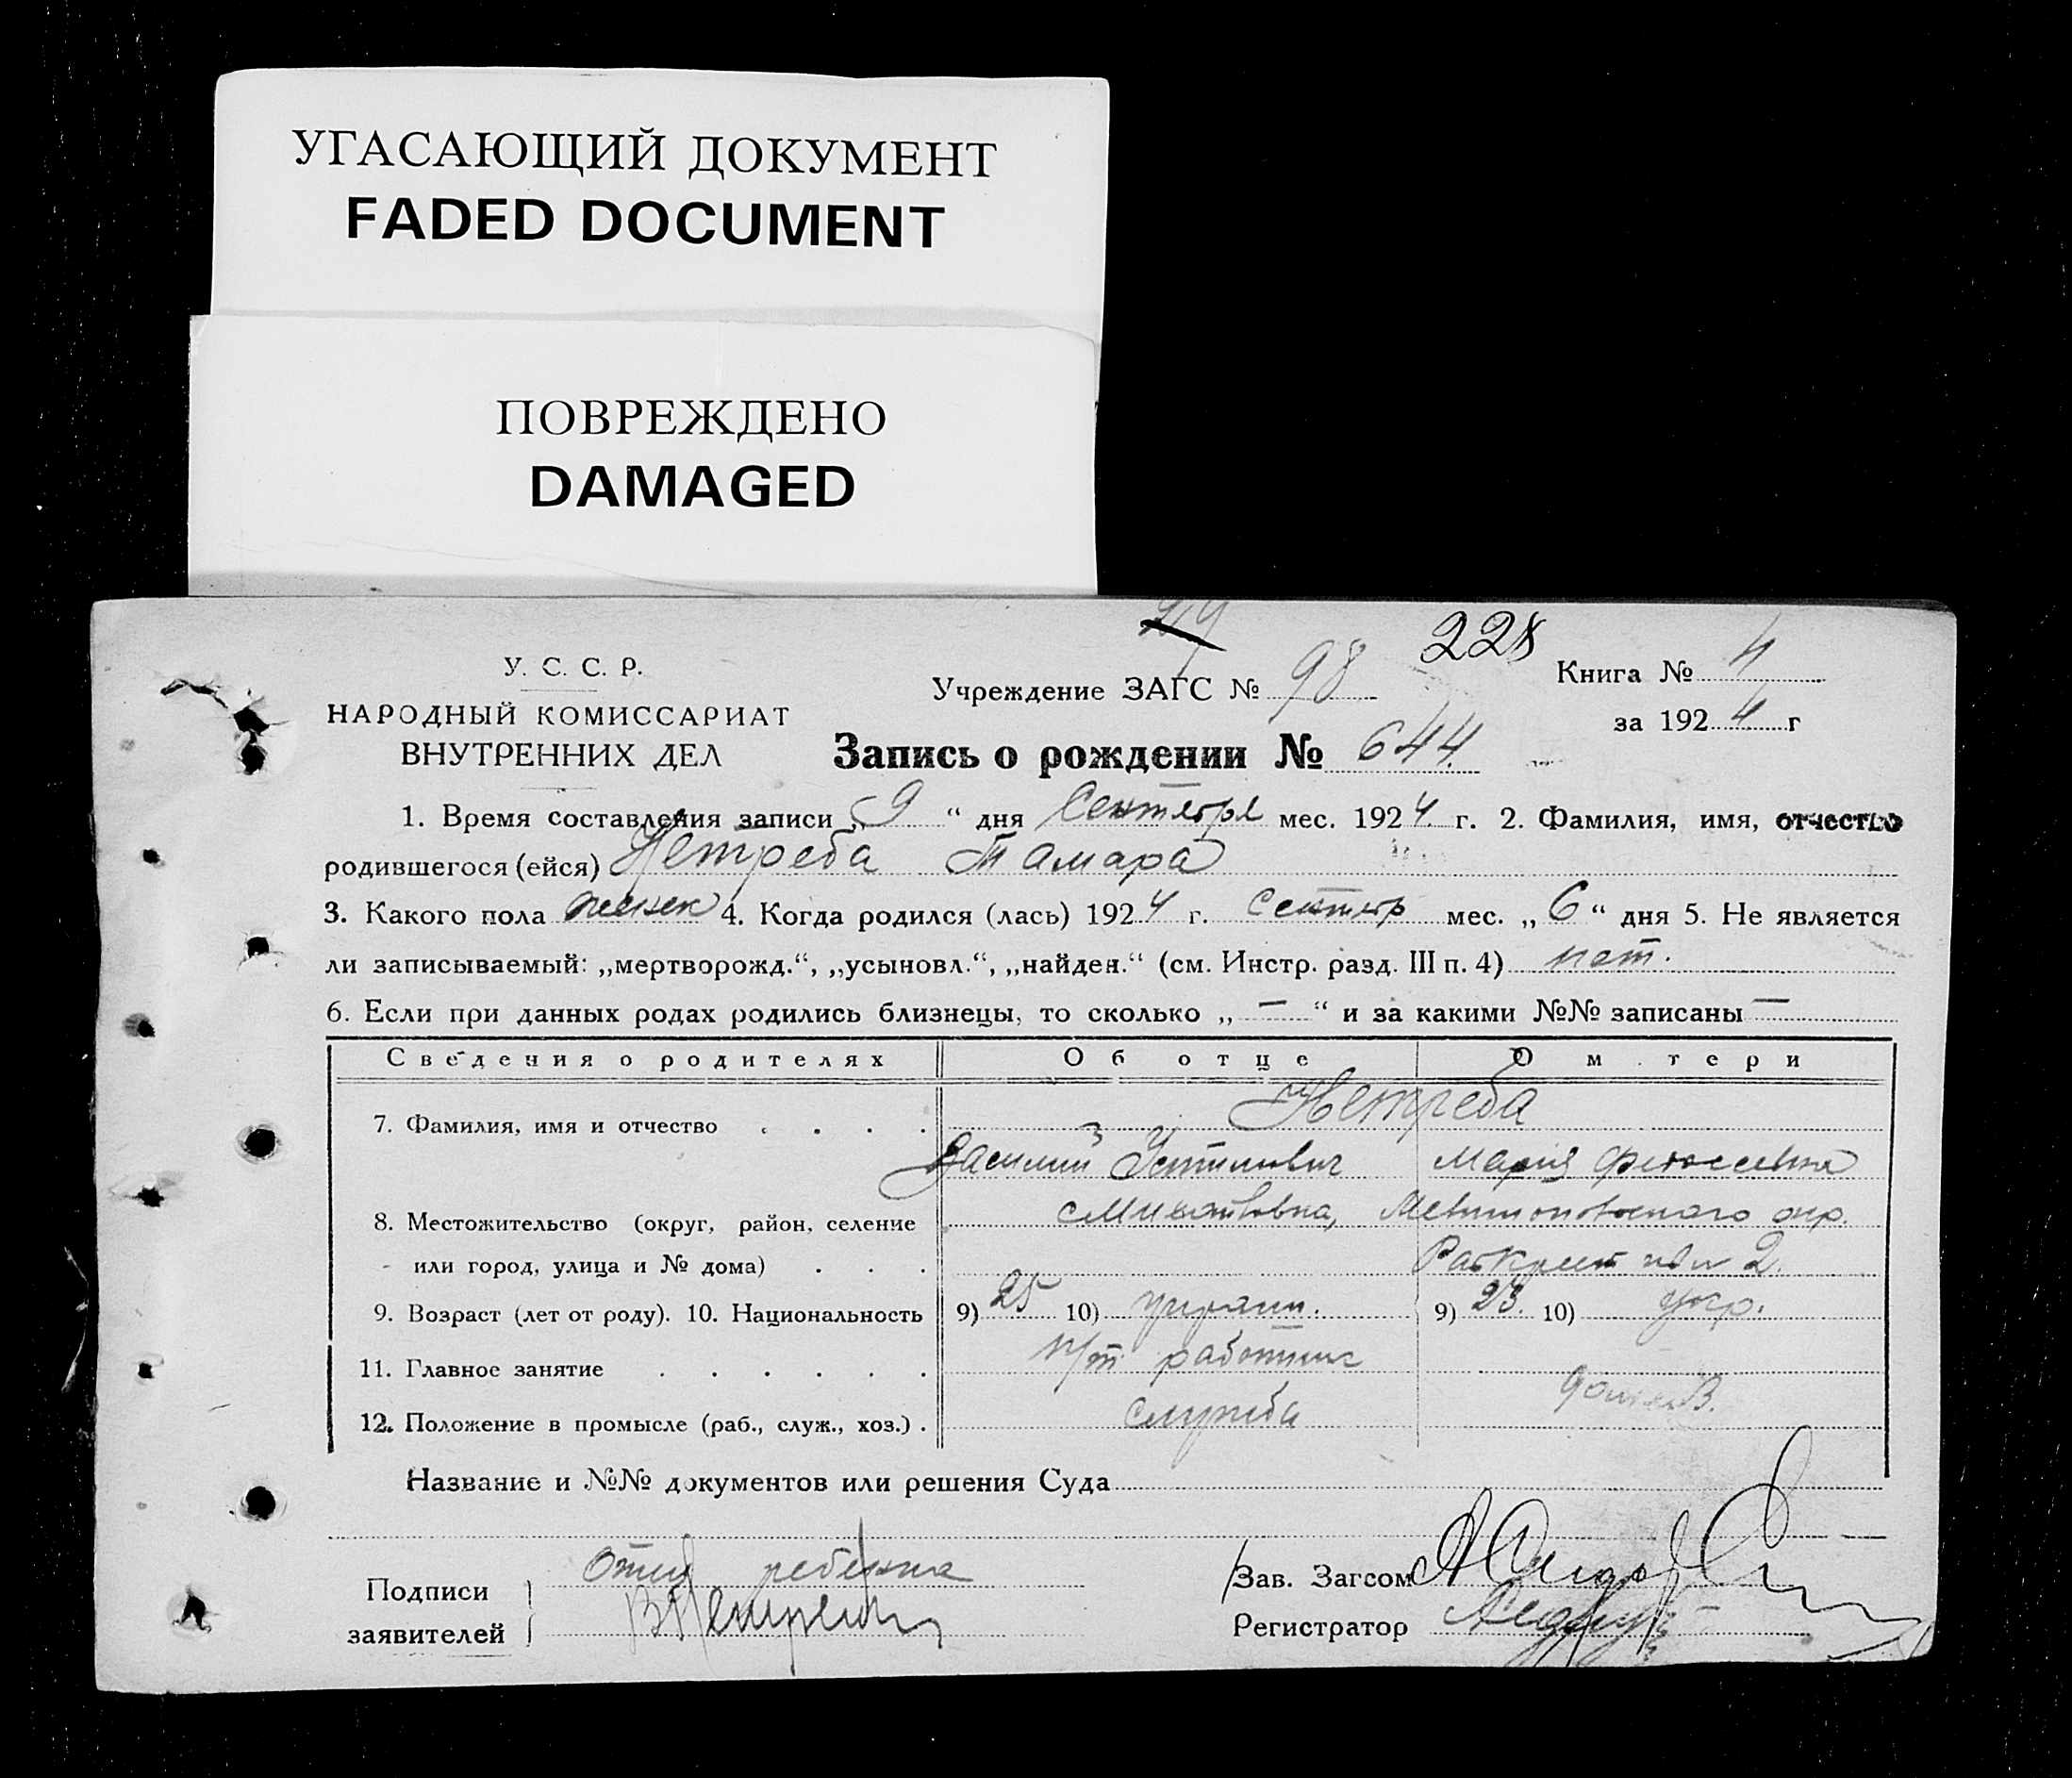 УГАСАЮЩИЙ ДОКУМЕНТ
FADED DOCUMENT
ПОВРЕЖДЕНО
DAMAGED
228
У. С. С. Р.
НАРОДНЫЙ КОМИССАРИАТ
ВНУТРЕННИХ ДЕЛ
Учреждение ЗАГС № 98
Книга № 4
за 1924 г
Запись о рождении № 644.
1. Время составления записи „9“ дня Сентября мес. 1924 г. 2. Фамилия, имя, отчество
родившегося (ейся) Нетреба Тамара
3. Какого пола женск 4. Когда родился (лась) 1924 г. Сентябр мес. „6“ дня 5. Не является
ли записываемый: „мертворожд.“, „усыновл.“, „найден.“ (см. Инстр. разд. III п. 4) нет.
6. Если при данных родах родились близнецы, то сколько „—“ и за какими №№ записаны —
Сведения о родителях Об отце О м тери
Нетреба
7. Фамилия, имя и отчество
Василий Устинович Мария
8. Местожительство (округ, район, селение
или город, улица и № дома) 2.
9. Возраст (лет от роду). 10. Национальность 9) 25 10) украин. 9) 23. 10) укр.
11. Главное занятие п/т работник
12. Положение в промысле (раб., служ., хоз.) служба
Название и №№ документов или решения Суда
Подписи
заявителей
Отец ребенка
В Нетреба
Зав. Загсом
Регистратор